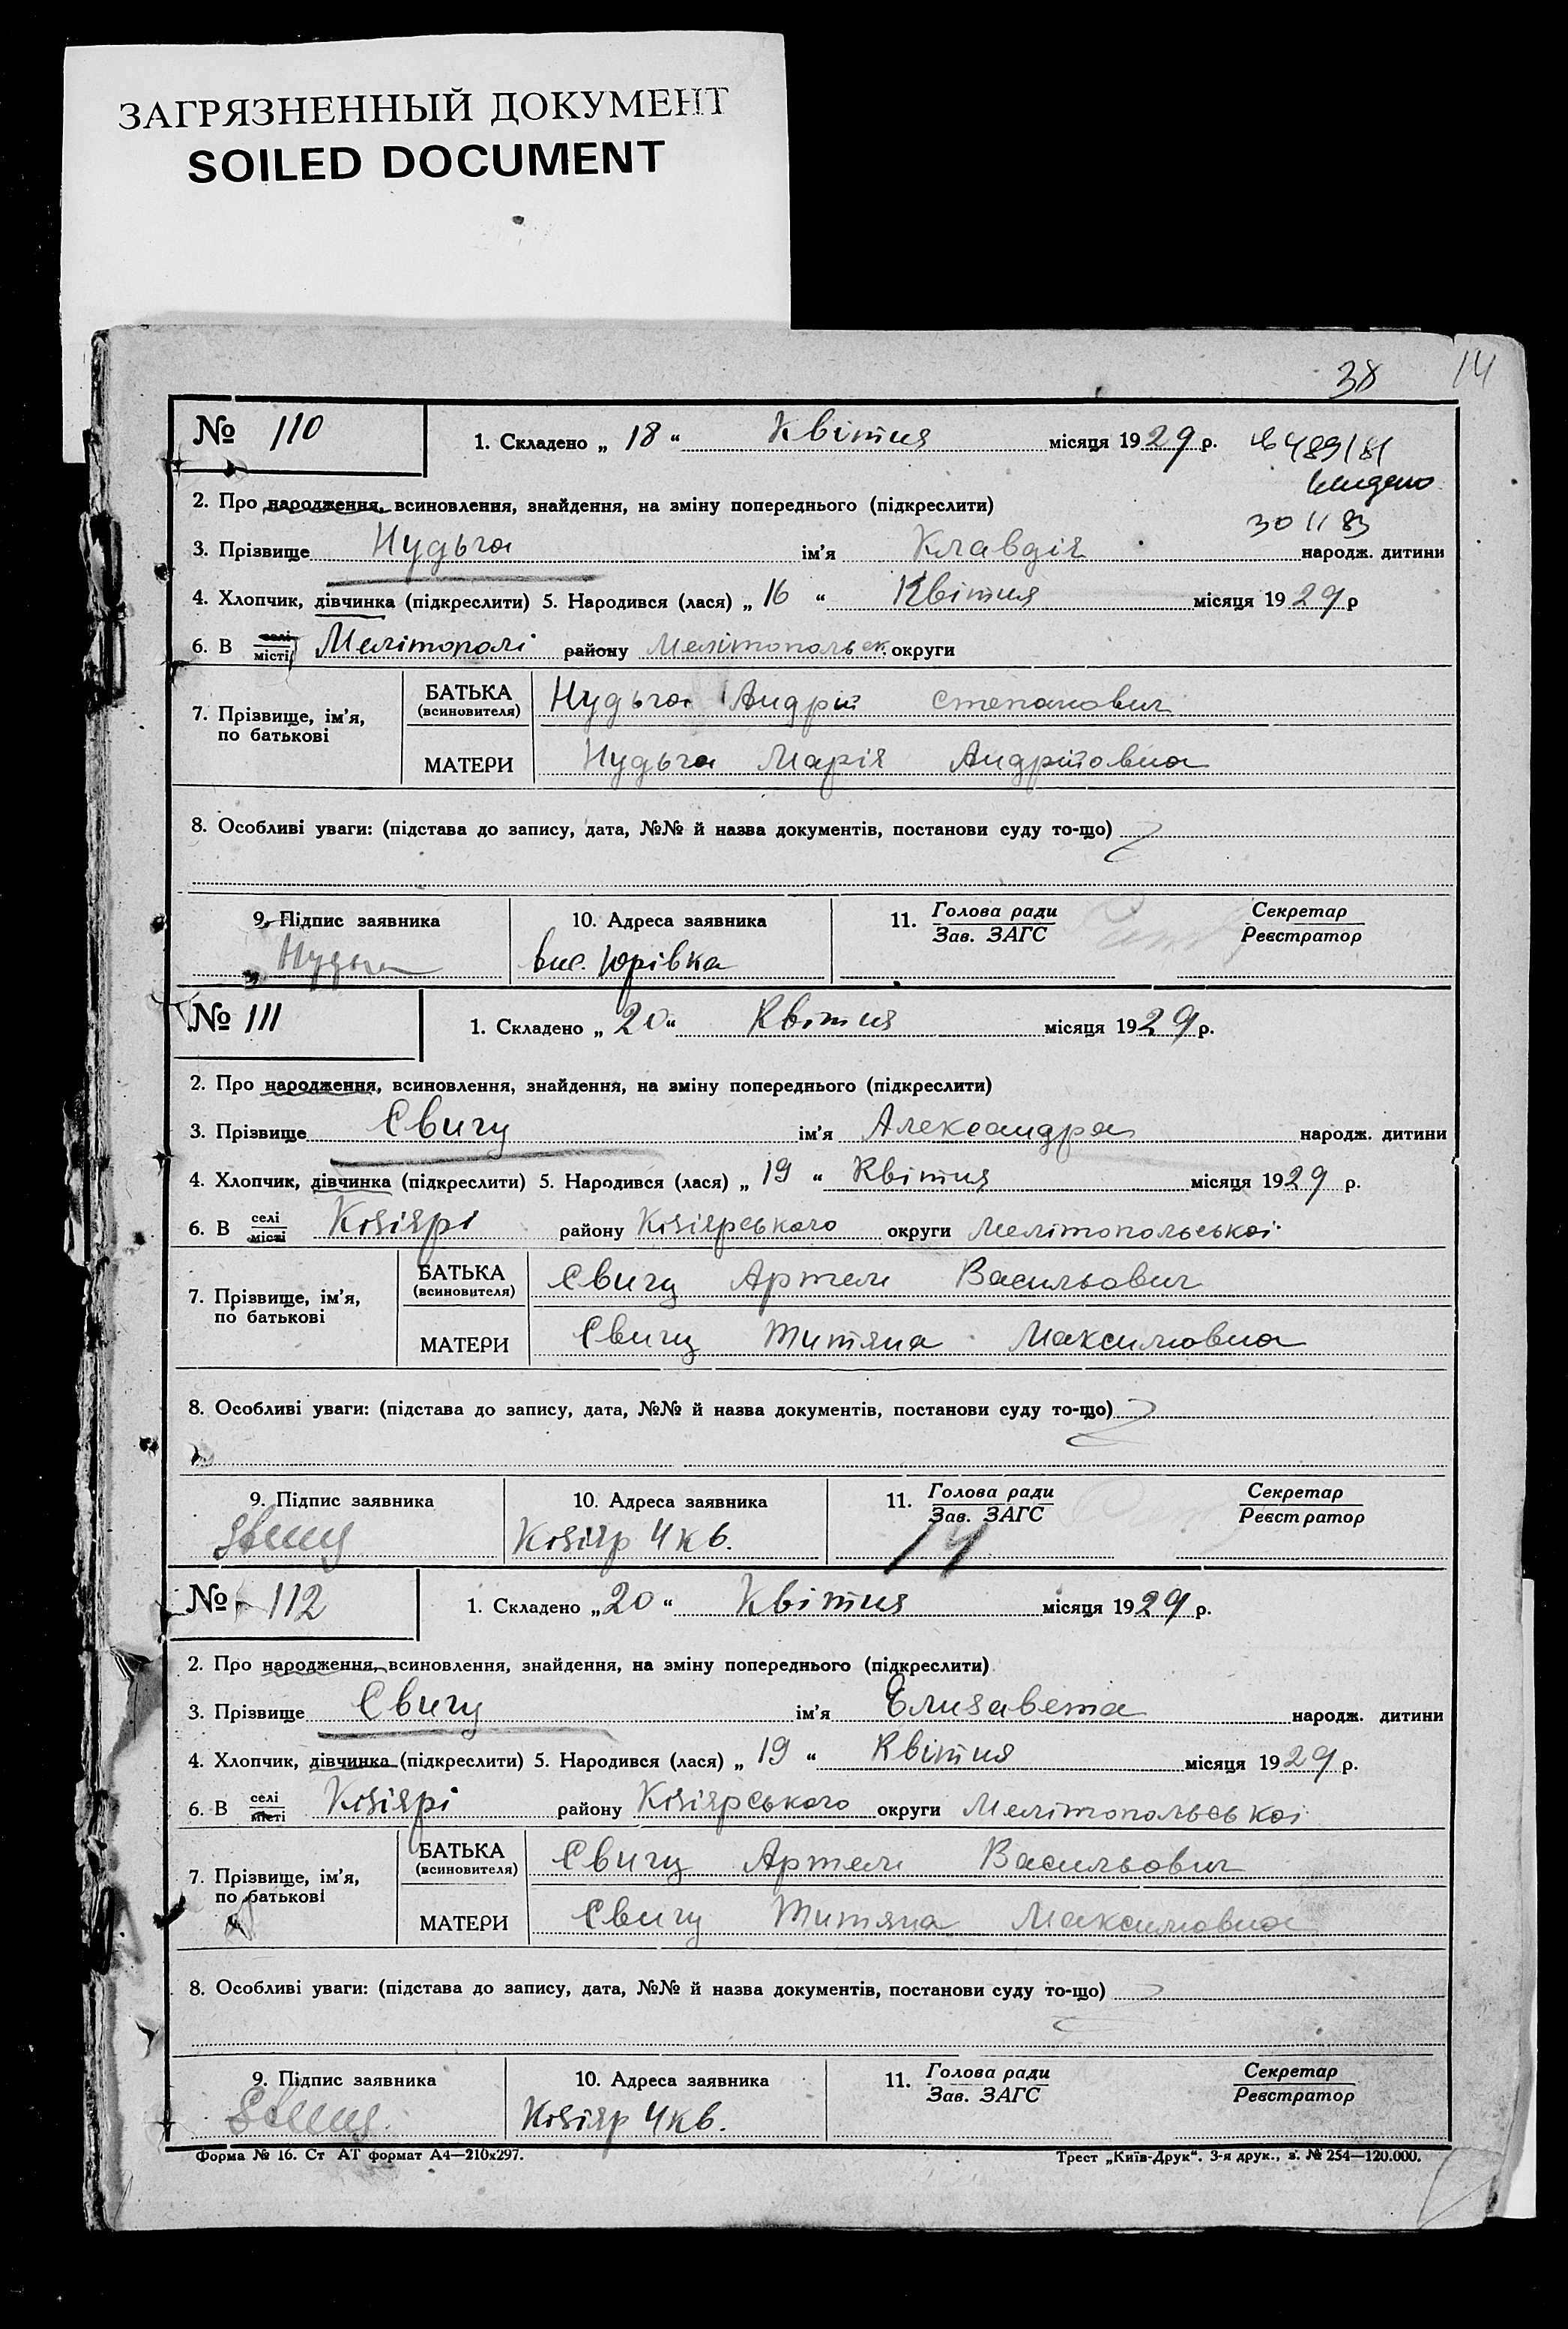 ЗАГРЯЗНЕННЫЙ ДОКУМЕНТ
SOILED DOCUMENT
38 14
№ 110 1. Складено „ 18 “ Квітня місяця 1929 р.
2. Про народження, всиновлення, знайдення, на зміну попереднього (підкреслити)
30 11 83
3. Прізвище Нудьга ім’я Клавдія народж. дитини
4. Хлопчик, дівчинка (підкреслити) 5. Народився (лася) „ 16 “ Квітня місяця 1929 р
6. В селі місті Мелітополі району Мелітопольськ. округи
7. Прізвище, ім’я, по батькові
БАТЬКА (всиновителя) Нудьга Андрій Степанович
МАТЕРИ Нудьга Марія Андрійовна
8. Особливі уваги: (підстава до запису, дата, №№ й назва документів, постанови суду то-що)
9. Підпис заявника 10. Адреса заявника 11. Голова ради Зав. ЗАГС Секретар Реєстратор
Нудьга вис. Юрівка
№ 111 1. Складено „ 20 “ Квітня місяця 1929 р.
2. Про народження, всиновлення, знайдення, на зміну попереднього (підкреслити)
3. Прізвище Євигу ім’я Александра народж. дитини
4. Хлопчик, дівчинка (підкреслити) 5. Народився (лася) „ 19 “ Квітня місяця 1929 р.
6. В селі місті Кізіярі району Кізіярського округи Мелітопольської
7. Прізвище, ім’я, по батькові
БАТЬКА (всиновителя) Артем Васильович
МАТЕРИ Титяна Максимовна
8. Особливі уваги: (підстава до запису, дата, №№ й назва документів, постанови суду то-що)
9. Підпис заявника 10. Адреса заявника 11. Голова ради Зав. ЗАГС Секретар Реєстратор
Кізіяр 4 кв. 14
№ 112 1. Складено „ 20 “ Квітня місяця 1929 р.
2. Про народження, всиновлення, знайдення, на зміну попереднього (підкреслити)
3. Прізвище Євигу ім’я Єлизавета народж. дитини
4. Хлопчик, дівчинка (підкреслити) 5. Народився (лася) „ 19 “ Квітня місяця 1929 р.
6. В селі місті Кізіярі району Кізіярського округи Мелітопольської
7. Прізвище, ім’я, по батькові
БАТЬКА (всиновителя) Артем Васильович
МАТЕРИ Титяна Максимовна
8. Особливі уваги: (підстава до запису, дата, №№ й назва документів, постанови суду то-що)
9. Підпис заявника 10. Адреса заявника 11. Голова ради Зав. ЗАГС Секретар Реєстратор
Кізіяр 4 кв.
Форма № 16. Ст АТ формат А4—210х297. Трест „Київ-Друк“. 3-я друк., з. № 254—120.000.